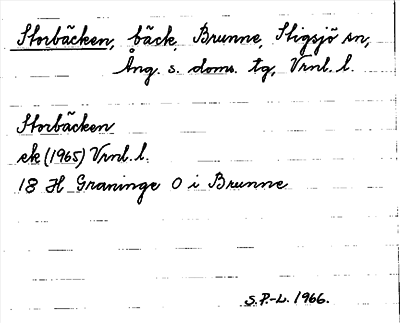 Storbäcken, bäck, Brunne, Stigsjö sn,
Ång. s. doms. tg, Vrnl. l.
Storbäcken
ek (1965) Vrnl. l.
18 H Graninge O i Brunne
S.P.-L. 1966.